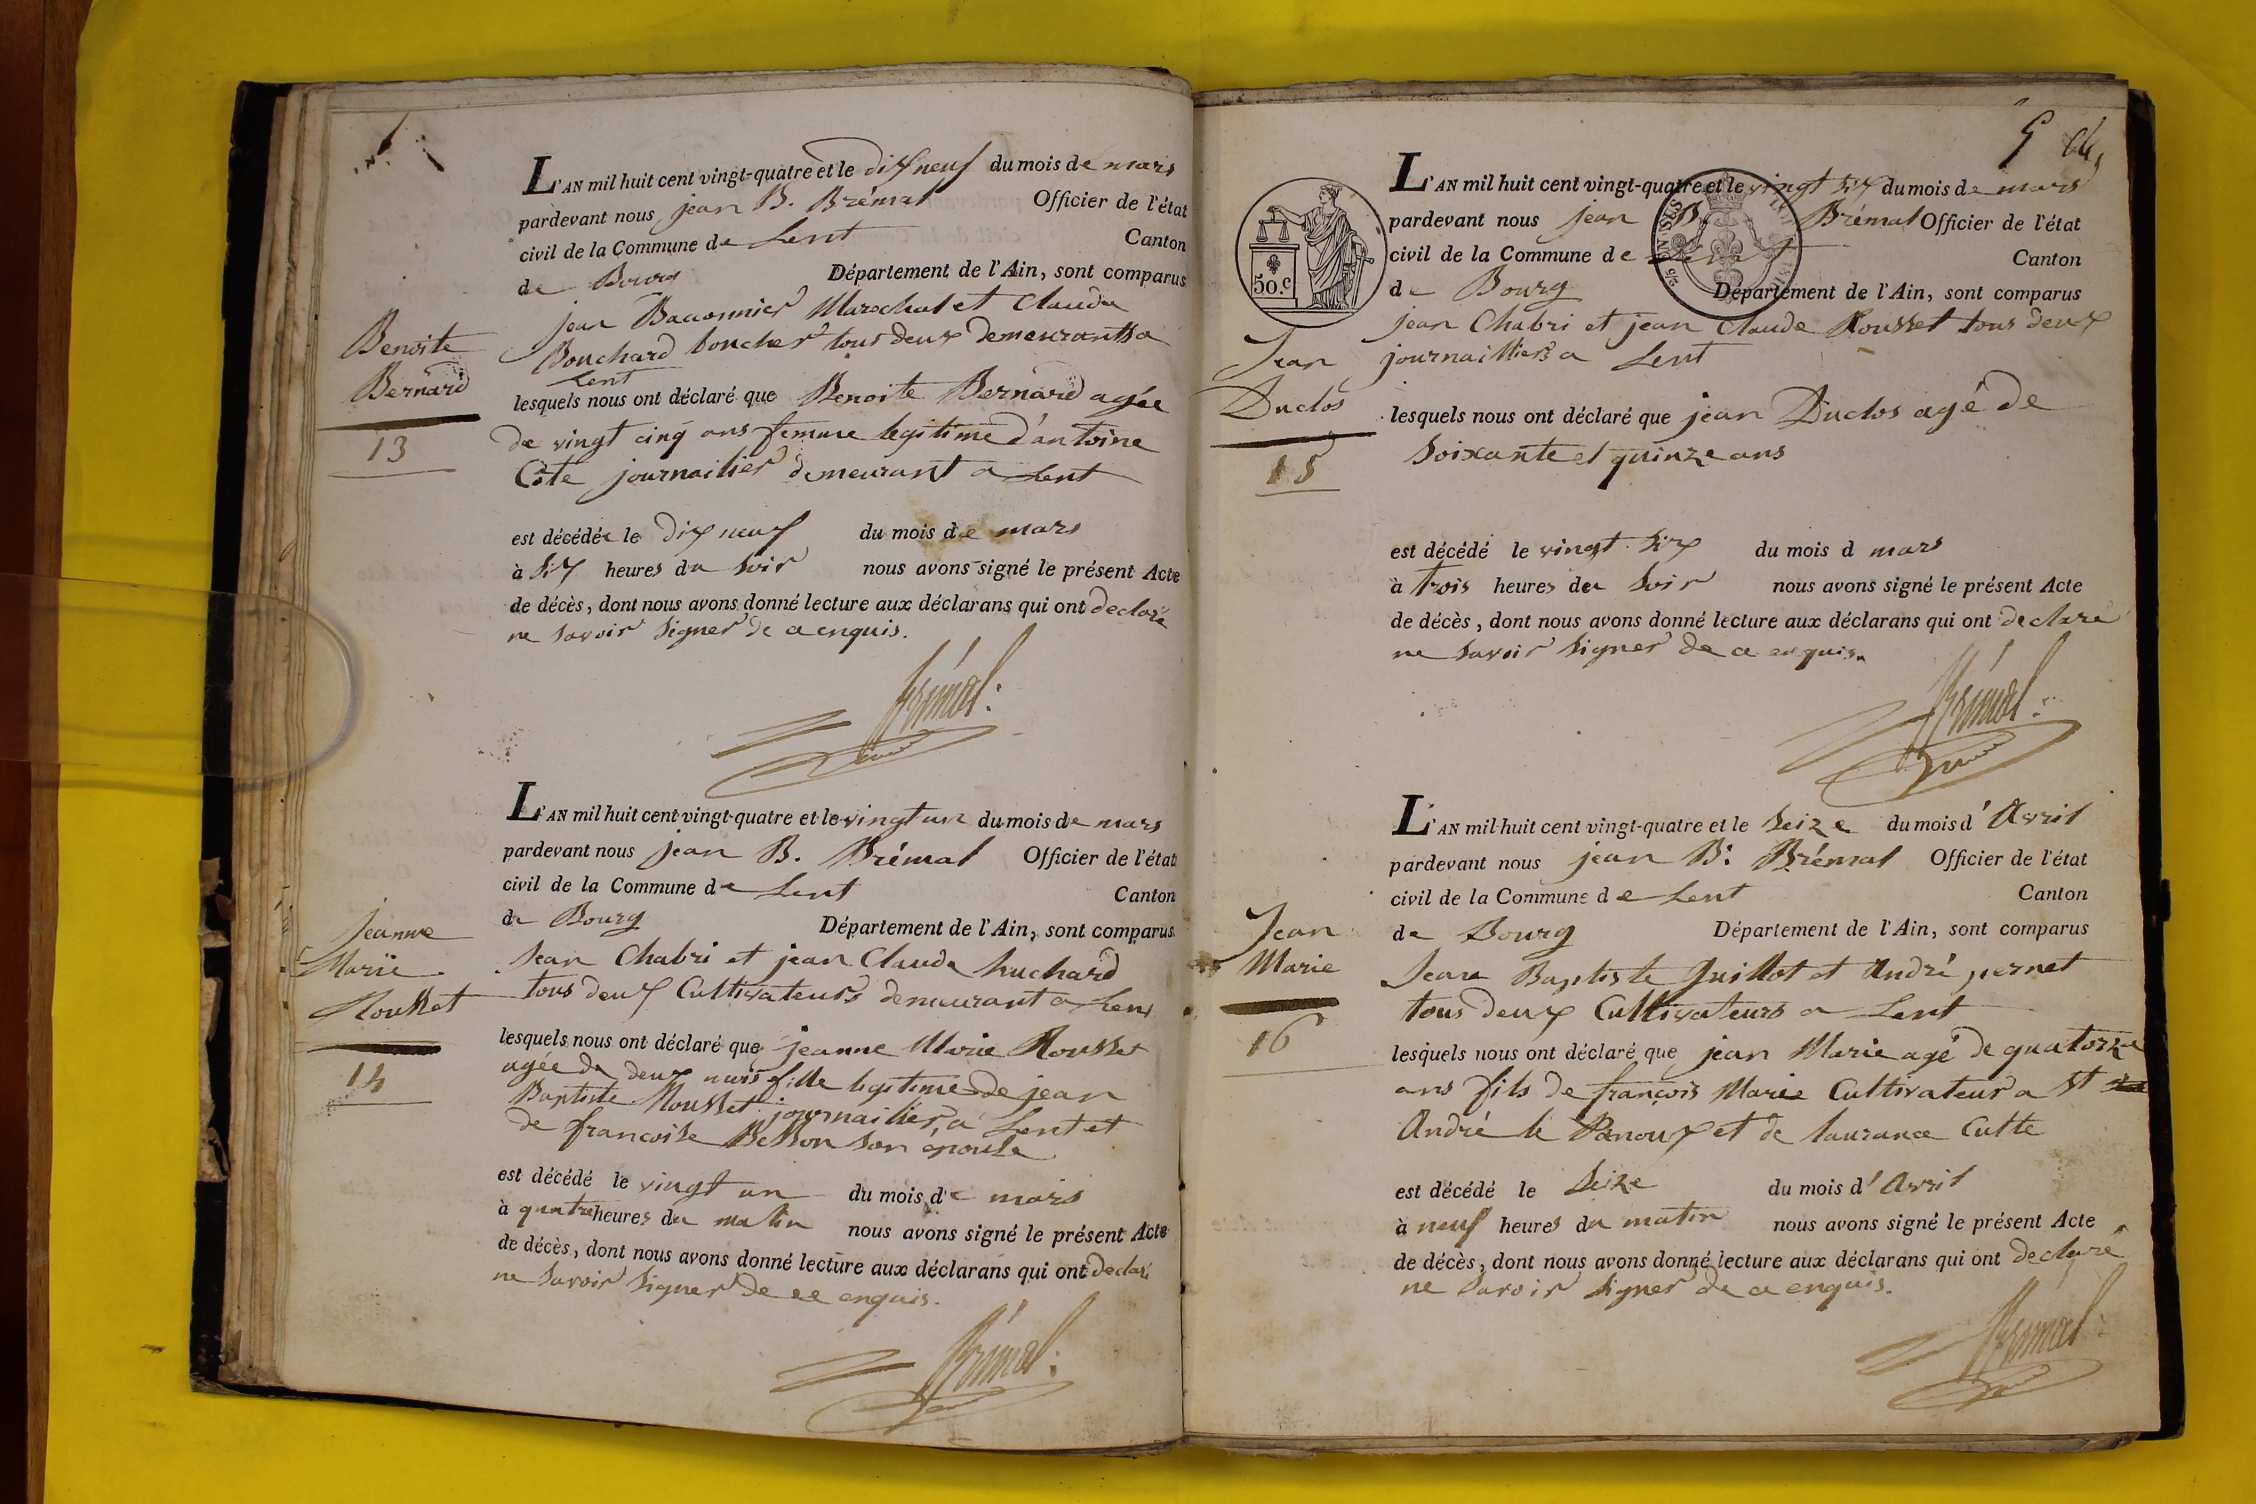 L'AN mil huit cent vingt-quatre et le dix neuf du mois de mars
pardevant nous jean B. Brémal Officier de l'état
civil de la Commune de Lent Canton
de Bourg Département de l'Ain, sont comparus
jean Baconnier Marechal et Claude
Bouchard boucher tous deux demeurants a
Lent
Benoite
Bernard
13
lesquels nous ont déclaré que Benoite Bernard agée
de vingt cinq ans femme legitime d'antoine
Côte journailier demeurant a Lent
est décédée le dix neuf du mois de mars
à six heures du soir nous avons signé le présent Acte
de décès, dont nous avons donné lecture aux déclarans qui ont declaré
ne savoir signer de ce enquis.
Brémal
L'AN mil huit cent vingt-quatre et le vingt un du mois de mars
pardevant nous jean B. Brémal Officier de l'état
civil de la Commune de Lent Canton
de Bourg Département de l'Ain, sont comparus
Jean Chabri et jean Claude huchard
tous deux Cultivateurs demeurant a Lent
Jeanne
Marie
Rousset
14
lesquels nous ont déclaré que jeanne Marie Rousset
agée de deux mois fille legitime de jean
Baptiste Rousset journailier, a Lent et
de francoise Besson son épouse
est décédé le vingt un du mois de mars
à quatre heures du matin nous avons signé le présent Acte
de décès, dont nous avons donné lecture aux déclarans qui ont declaré
ne savoir signer de ce enquis.
Brémal
5
50.c
L'AN mil huit cent vingt-quatre et le vingt six du mois de mars
pardevant nous jean B. Brémal Officier de l'état
civil de la Commune de Lent Canton
de Bourg Département de l'Ain, sont comparus
Jean Chabri et jean Claude Rousset tous deux
journailliers a Lent
Jean
Duclos
15
lesquels nous ont déclaré que jean Duclos agé de
soixante et quinze ans
est décédé le vingt six du mois d mars
à trois heures du soir nous avons signé le présent Acte
de décès, dont nous avons donné lecture aux déclarans qui ont declaré
ne savoir signer de ce enquis.
Brémal
L'AN mil huit cent vingt-quatre et le seize du mois d'Avril
pardevant nous jean B. Brémal Officier de l'état
civil de la Commune de Lent Canton
de Bourg Département de l'Ain, sont comparus
Jean Baptiste Guillot et André pernet
tous deux Cultivateurs a Lent
Jean
Marie
16
lesquels nous ont déclaré que jean Marie agé de quatorze
ans fils de françois Marie Cultivateur a St
André le Panoux et de laurance Cutte
est décédé le seize du mois d'Avril
à neuf heures du matin nous avons signé le présent Acte
de décès, dont nous avons donné lecture aux déclarans qui ont declaré
ne savoir signer de ce enquis.
Brémal